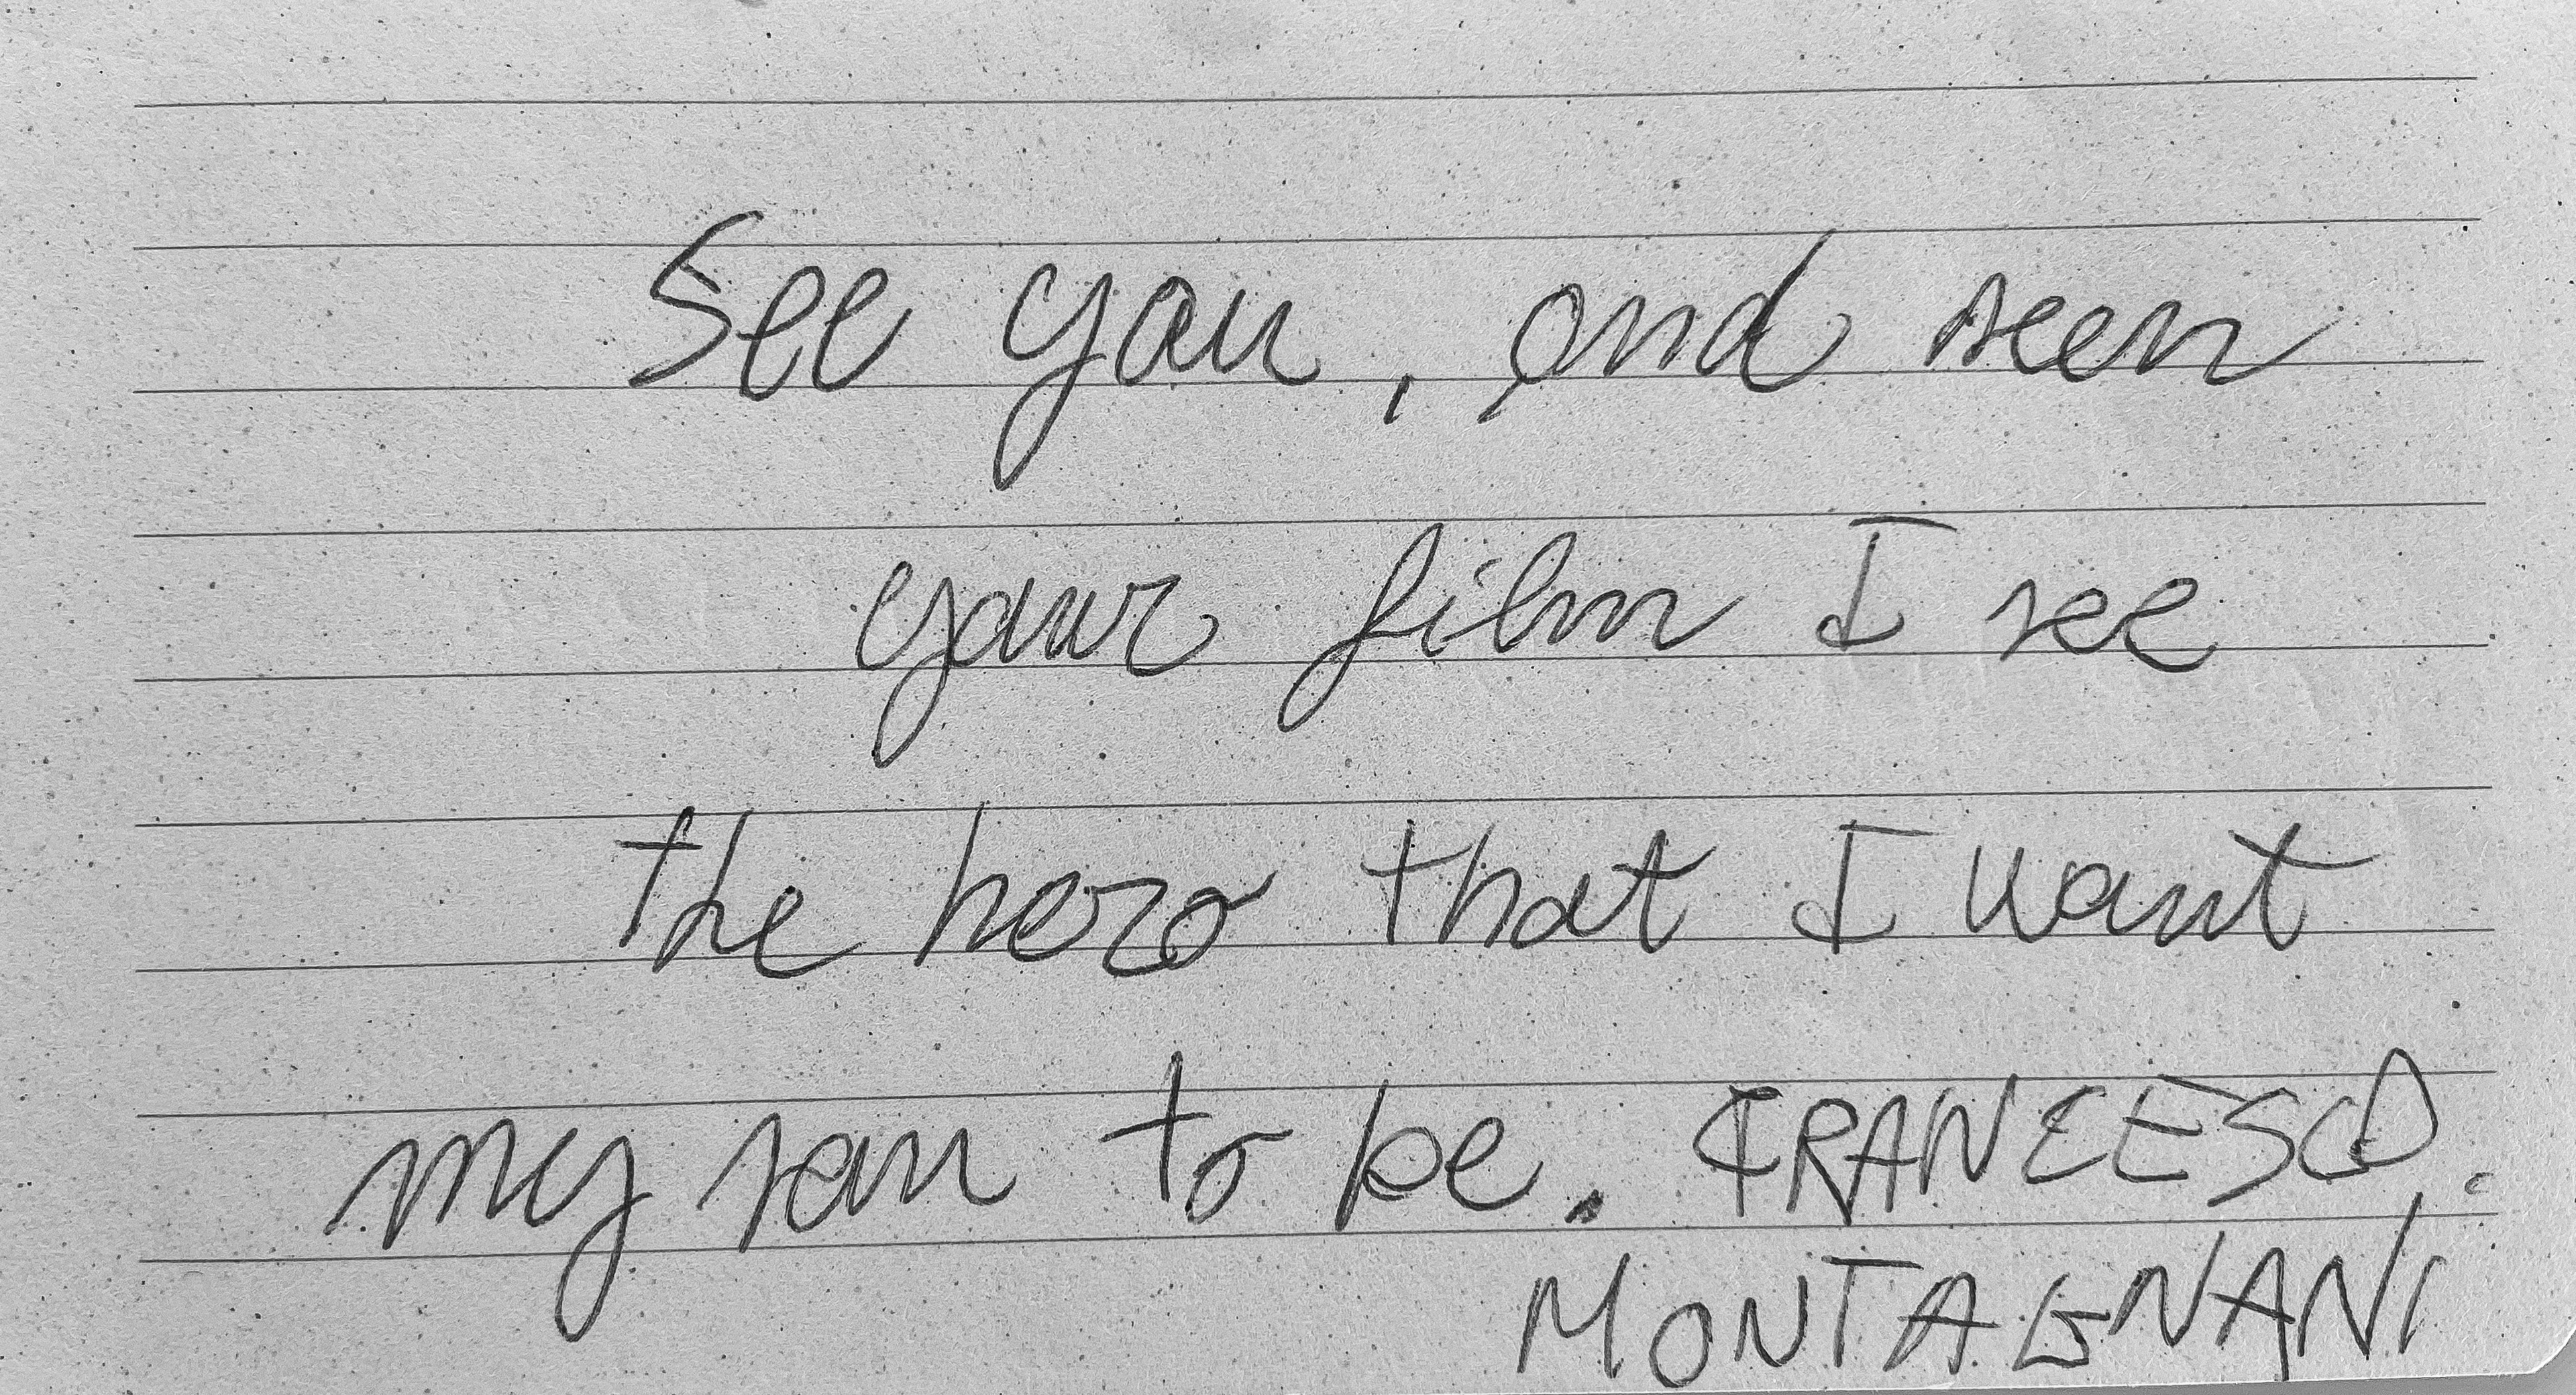 See you, and seen
your film I see
the hero that I want
my son to be. FRANCESCO.
MONTAGNANI